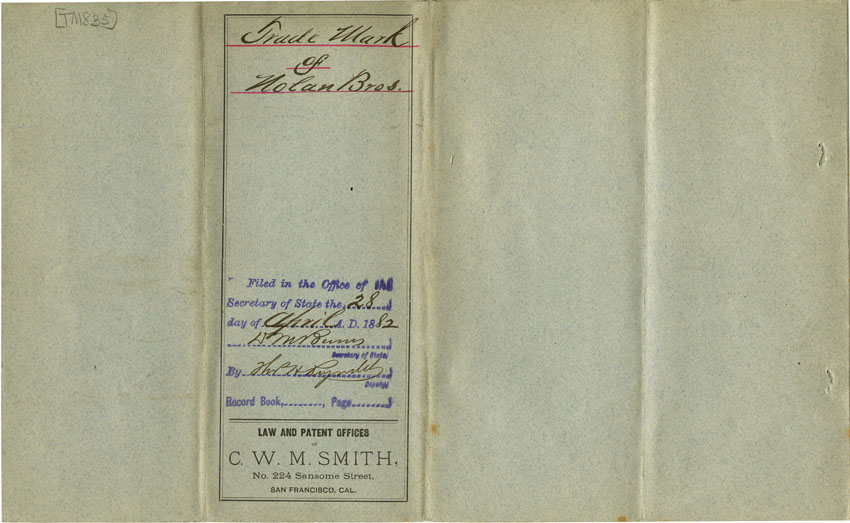 [TM835]
Trade Mark
of
Nolan Bros.
Filed in the Office of the
Secretary of State the, 28
day of April A. D. 1882
D M Burns
Secretary of State,
By Thos H Reynolds
Deputy
Record Book, , Page
LAW AND PATENT OFFICES
OF
C. W. M. SMITH,
No. 224 Sansome Street,
SAN FRANCISCO, CAL.